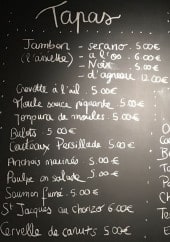 Tapas
Jambon - serano. 5.00€
(l'assiette) - à l'os. 6.00€
- Noir. 5.00€
- d'agneau. 12.00€
Crevette à l'ail. 5.00€
Moule sauce piquante. 5.00€
Tempura de moules. 5.00€
Bulots. 5.00€
Couteaux Persillade. 5.00€
Anchois marinés. 5.00€
Poulpe en salade. 5.00€
Saumon fumé. 5.00€
St Jacques au chorizo 6.00€
Cervelle de canuts 5.00€